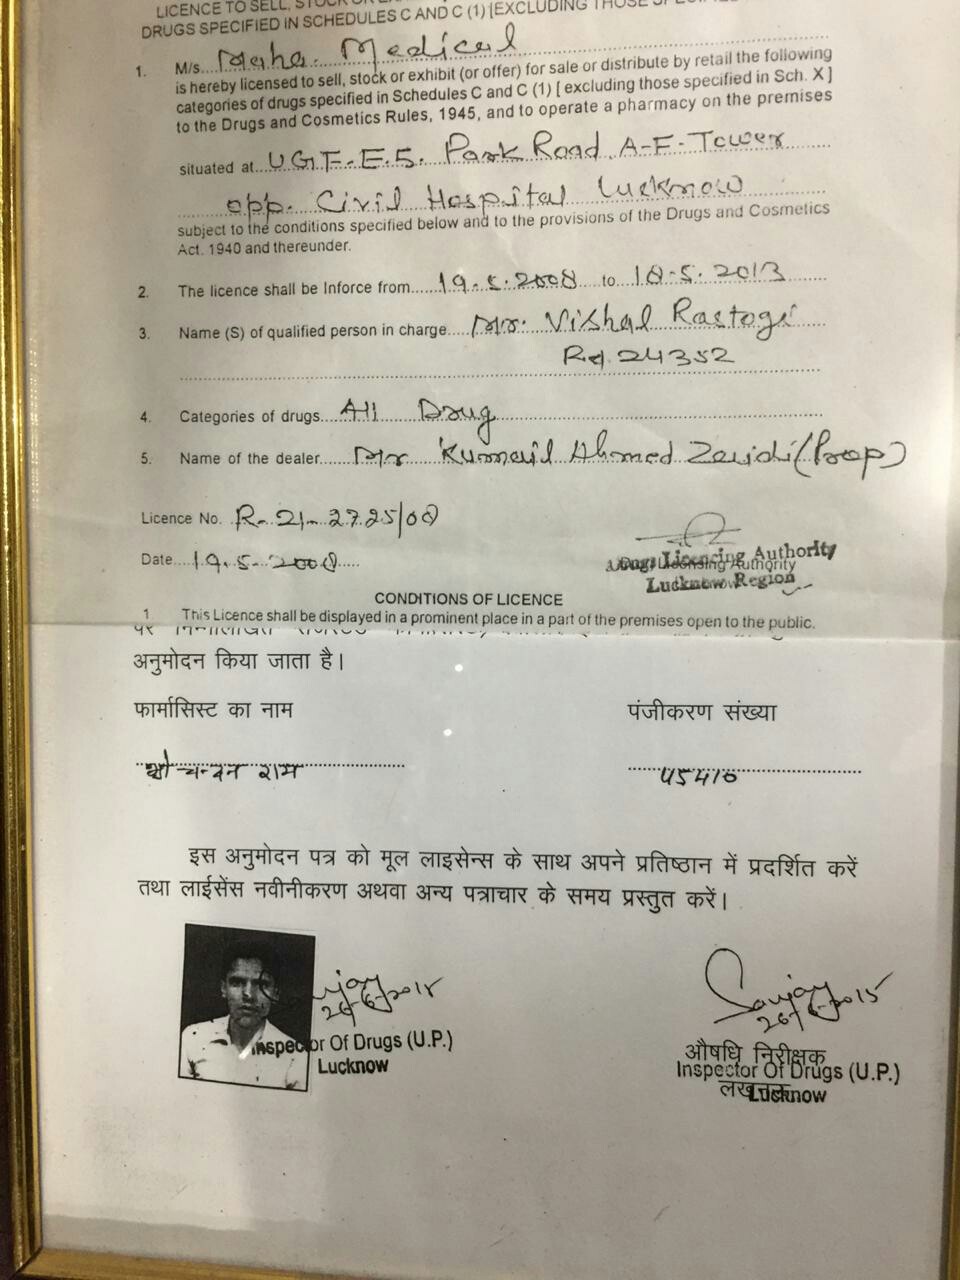 LICENCE TO SELL, STOCK OR
DRUGS SPECIFIED IN SCHEDULES C AND C (1) [EXCLUDING THOSE
1. M/s Maha Medical
is hereby licensed to sell, stock or exhibit (or offer) for sale or distribute by retail the following
categories of drugs specified in Schedules C and C (1) [ excluding those specified in Sch. X ]
to the Drugs and Cosmetics Rules, 1945, and to operate a pharmacy on the premises
situated at UGF-E-5. Park Road A-F-Tower
opp. Civil Hospital Lucknow
subject to the conditions specified below and to the provisions of the Drugs and Cosmetics
Act. 1940 and thereunder.
2. The licence shall be Inforce from 19.5.2008 to 18.5.2013
3. Name (S) of qualified person in charge Mr. Vishal Rastogi
24352
4. Categories of drugs All Drug
5. Name of the dealer Mr Kumail Ahmed Zaidi (Prop)
Licence No. R-21-2725/08
Date 19.5.2008
Drugs Licencing Authority
Lucknow Region
CONDITIONS OF LICENCE
1 This Licence shall be displayed in a prominent place in a part of the premises open to the public.
अनुमोदन किया जाता है।
फार्मासिस्ट का नाम पंजीकरण संख्या
श्री चन्दन राम 45416
इस अनुमोदन पत्र को मूल लाइसेन्स के साथ अपने प्रतिष्ठान में प्रदर्शित करें
तथा लाईसेंस नवीनीकरण अथवा अन्य पत्राचार के समय प्रस्तुत करें।
Sanjay
Inspector Of Drugs (U.P.)
Lucknow
Sanjay
26-6-2015
औषधि निरीक्षक
Inspector Of Drugs (U.P.)
लखनऊ
Lucknow